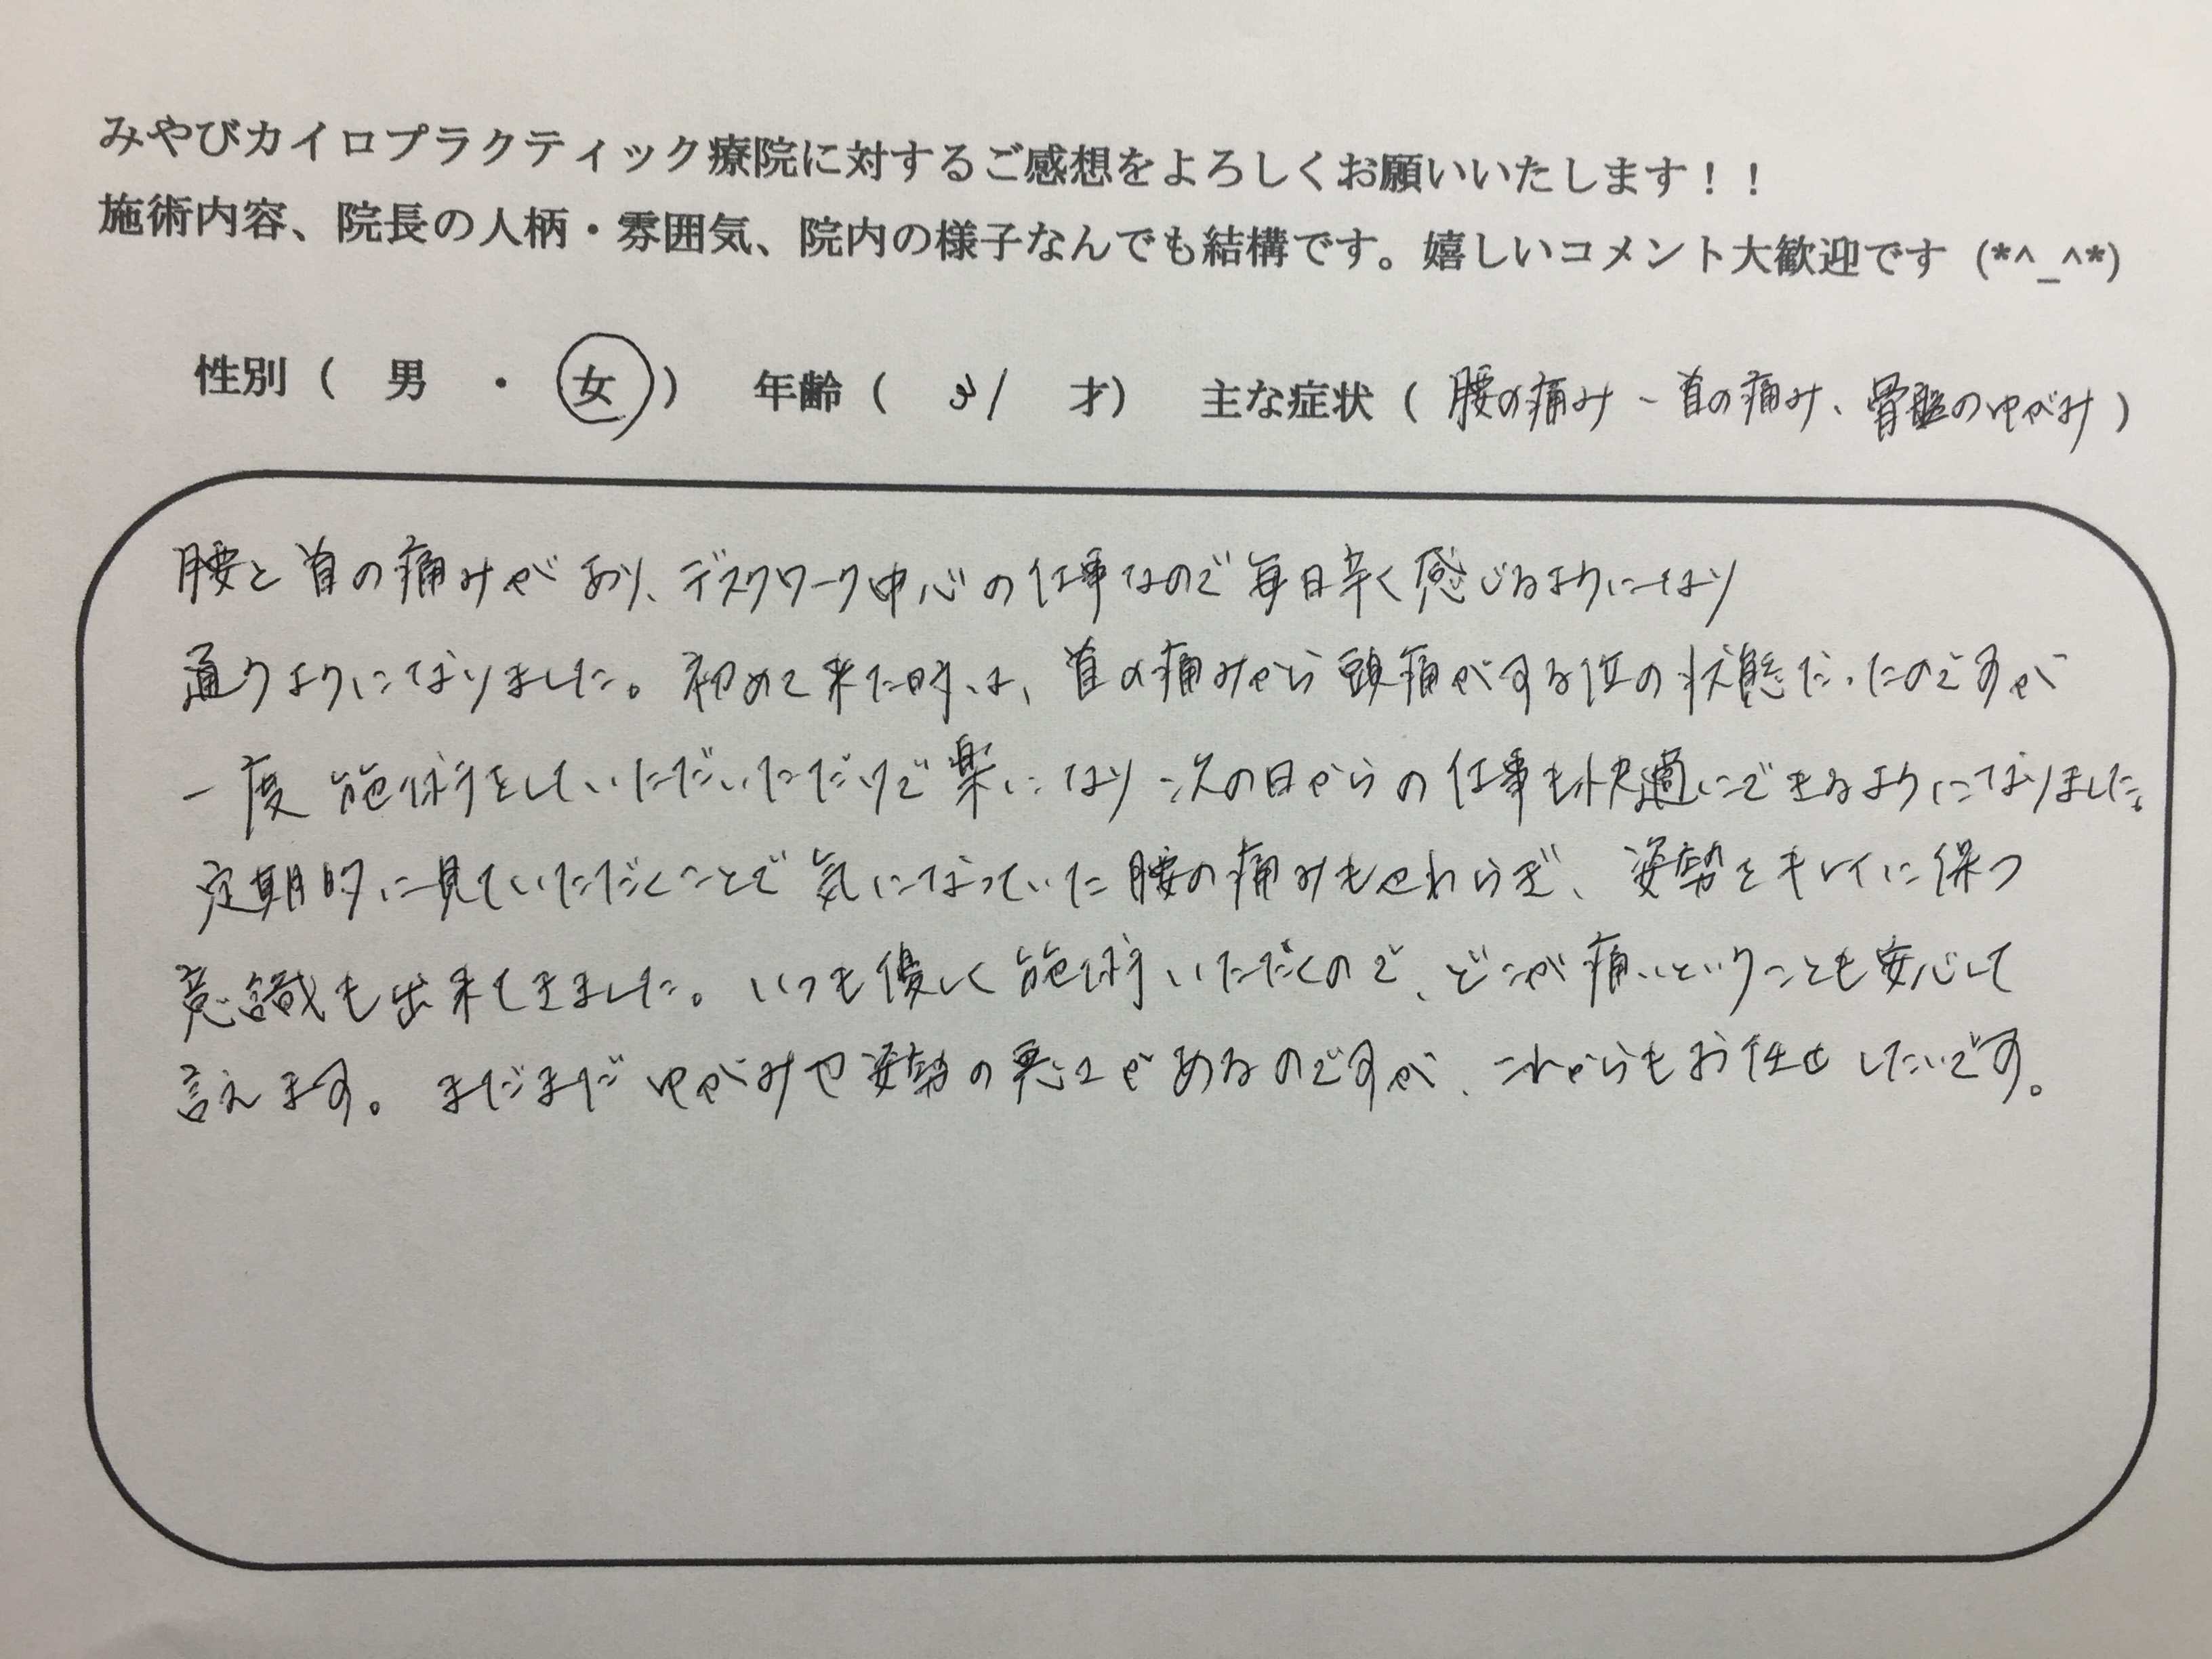 みやびカイロプラクティック療院に対するご感想をよろしくお願いいたします！！
施術内容、院長の人柄・雰囲気、院内の様子なんでも結構です。嬉しいコメント大歓迎です (*^_^*)
性別（ 男 ・ 女 ） 年齢（ 31 才） 主な症状（ 腰の痛み、首の痛み、骨盤のゆがみ ）
腰と首の痛みがあり、デスクワーク中心の仕事なので毎日辛く感じるようになり
通うようになりました。初めて来た時は、首の痛みから頭痛がする位の状態だったのですが
一度施術をしていただいただけで楽になり次の日からの仕事も快適にできるようになりました。
定期的に見ていただくことで気になっていた腰の痛みもやわらぎ、姿勢をキレイに保つ
意識も出来てきました。いつも優しく施術いただくので、どこが痛いということも安心して
言えます。まだまだゆがみや姿勢の悪さがあるのですが、これからもお任せしたいです。